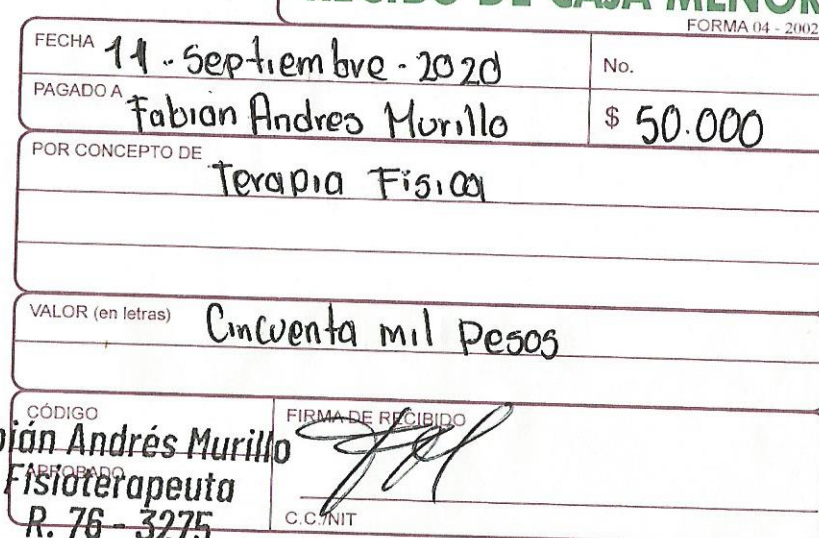 RECIBO DE CAJA MENOR
FORMA 04 - 2002
FECHA 11 - Septiembre - 2020
No.
PAGADO A Fabian Andres Murillo
$ 50.000
POR CONCEPTO DE Terapia Fisica
VALOR (en letras) Cincuenta mil pesos
CÓDIGO
FIRMA DE RECIBIDO
bián Andrés Murillo
APROBADO
Fisioterapeuta
R. 76 - 3275
C.C./NIT